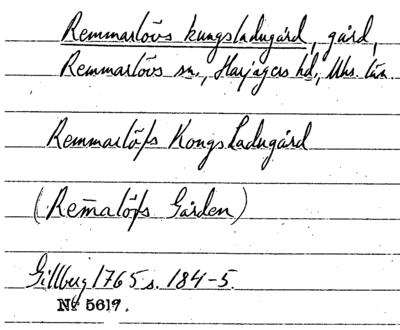 Remmarlövs kungsladugård, gård,
Remmarlövs sn., Harjagers hd., Mhs. län.
Remmarlöfs Kongs Ladugård
(Rem̄alöfs Gården)
Gillberg 1765 s. 184-5.
No 5619.